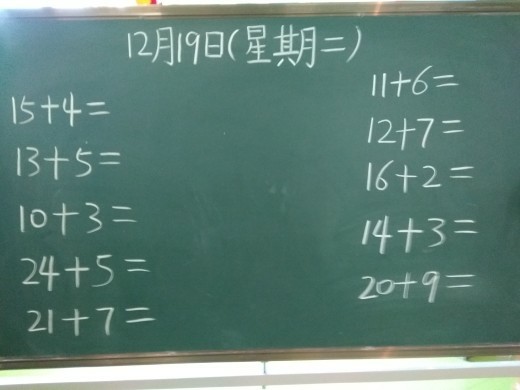 12月19日(星期二)
15+4=
13+5=
10+3=
24+5=
21+7=
11+6=
12+7=
16+2=
14+3=
20+9=